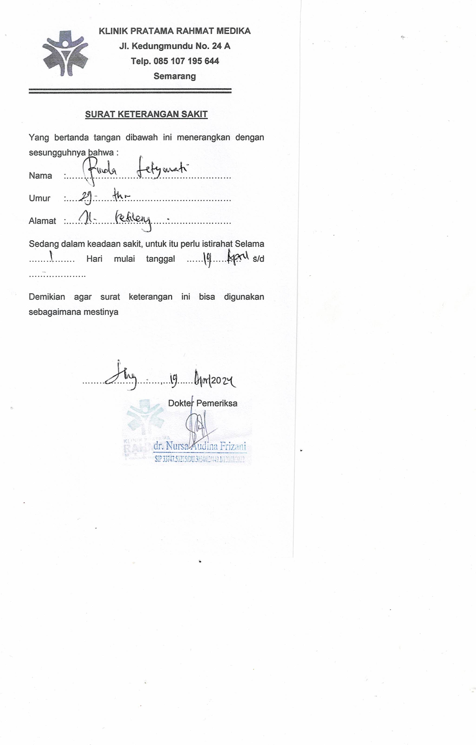 KLINIK PRATAMA RAHMAT MEDIKA
Jl. Kedungmundu No. 24 A
Telp. 085 107 195 644
Semarang
SURAT KETERANGAN SAKIT
Yang bertanda tangan dibawah ini menerangkan dengan
sesungguhnya bahwa :
Nama :
Umur : 29 thn
Alamat : Jl.
Sedang dalam keadaan sakit, untuk itu perlu istirahat Selama
1 Hari mulai tanggal 19 April s/d
Demikian agar surat keterangan ini bisa digunakan
sebagaimana mestinya
19 April 2024
Dokter Pemeriksa
dr. Nursa Audina Frizani